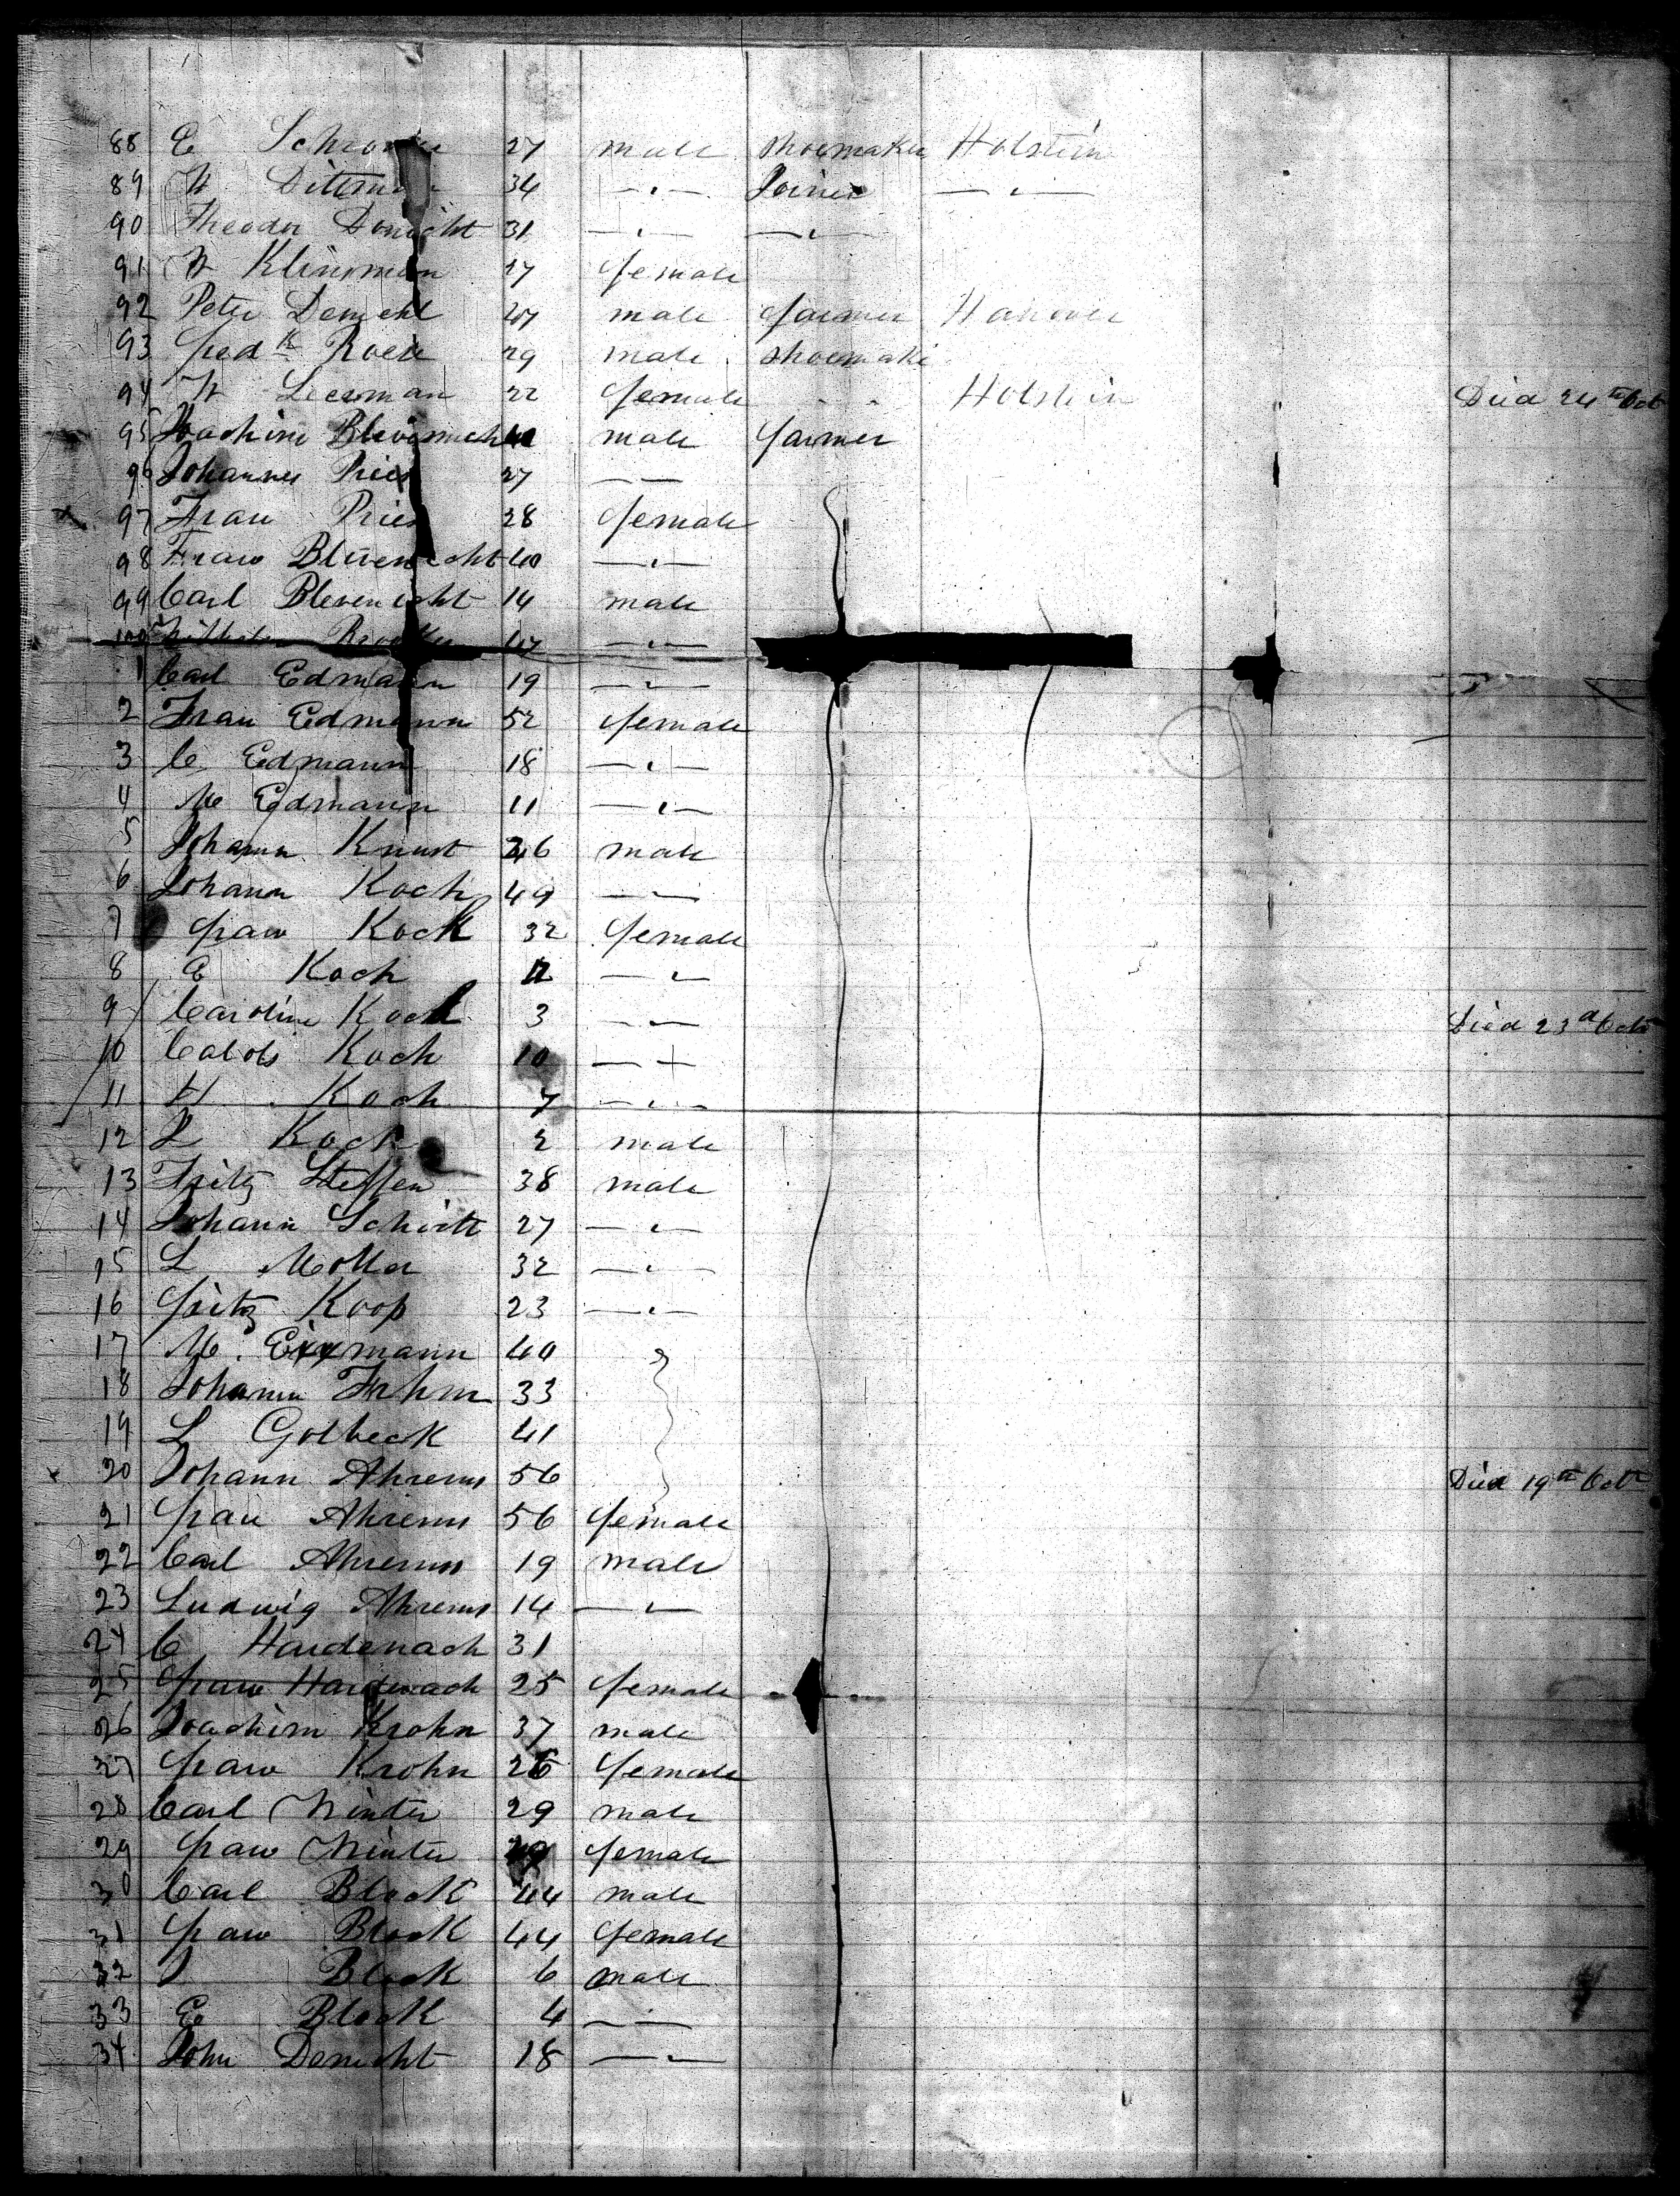 88 E Schro 27 male shoemaker Holstein
89 W Ditman 34 —"— Joiner —"—
90 Theodor Donicht 31 —"— —"—
91 W Klinsman 27 female
92 Peter Demehl 27 male farmer Hanover
93 fredk Roese 29 male shoemake
94 W Leesman 22 female " " Holstein Died 24th Oct
95 Joachim male farmer
96 Johannes Pries 27 — —
97 Frau Pries 28 female
98 Frau Blievenicht 40 —"—
99 Carl Blevenicht 14 male
100 —"—
1 Carl Edmann 19 —"—
2 Frau Edmann 52 female
3 C Edmann 18 —"—
4 M Edmann 11 —"—
5 Johann Knust male
6 Johann Koch 49 —"—
7 frau Koch 32 female
8 Koch —"—
9 Caroline Koch 3 —"— Died 23d Octr
10 Koch 10 —"—
11 H Koch 7 —"—
12 L Koch 2 male
13 Fritz Steffen 38 male
14 Johann Schutt 27 —"—
15 L Moller 32 —"—
16 fritz Koop 23 —"—
17 M. mann 40
18 Johann Frhm 33
19 L Golbeck 41
20 Johann Ahrens 56 Died 19th Octr
21 frau Ahrens 56 female
22 Carl Ahrens 19 male
23 Ludwig Ahrens 14 —"—
24 C Hardenach 31
25 frau Hardenach 25 female
26 Joachim Krohn 37 male
27 frau Krohn 26 female
28 Carl Winter 29 male
29 frau Winter female
30 Carl Block 44 male
31 frau Block 44 female
32 J Block 6 male
33 E Block 4 —"—
34 John Denicht 18 —"—